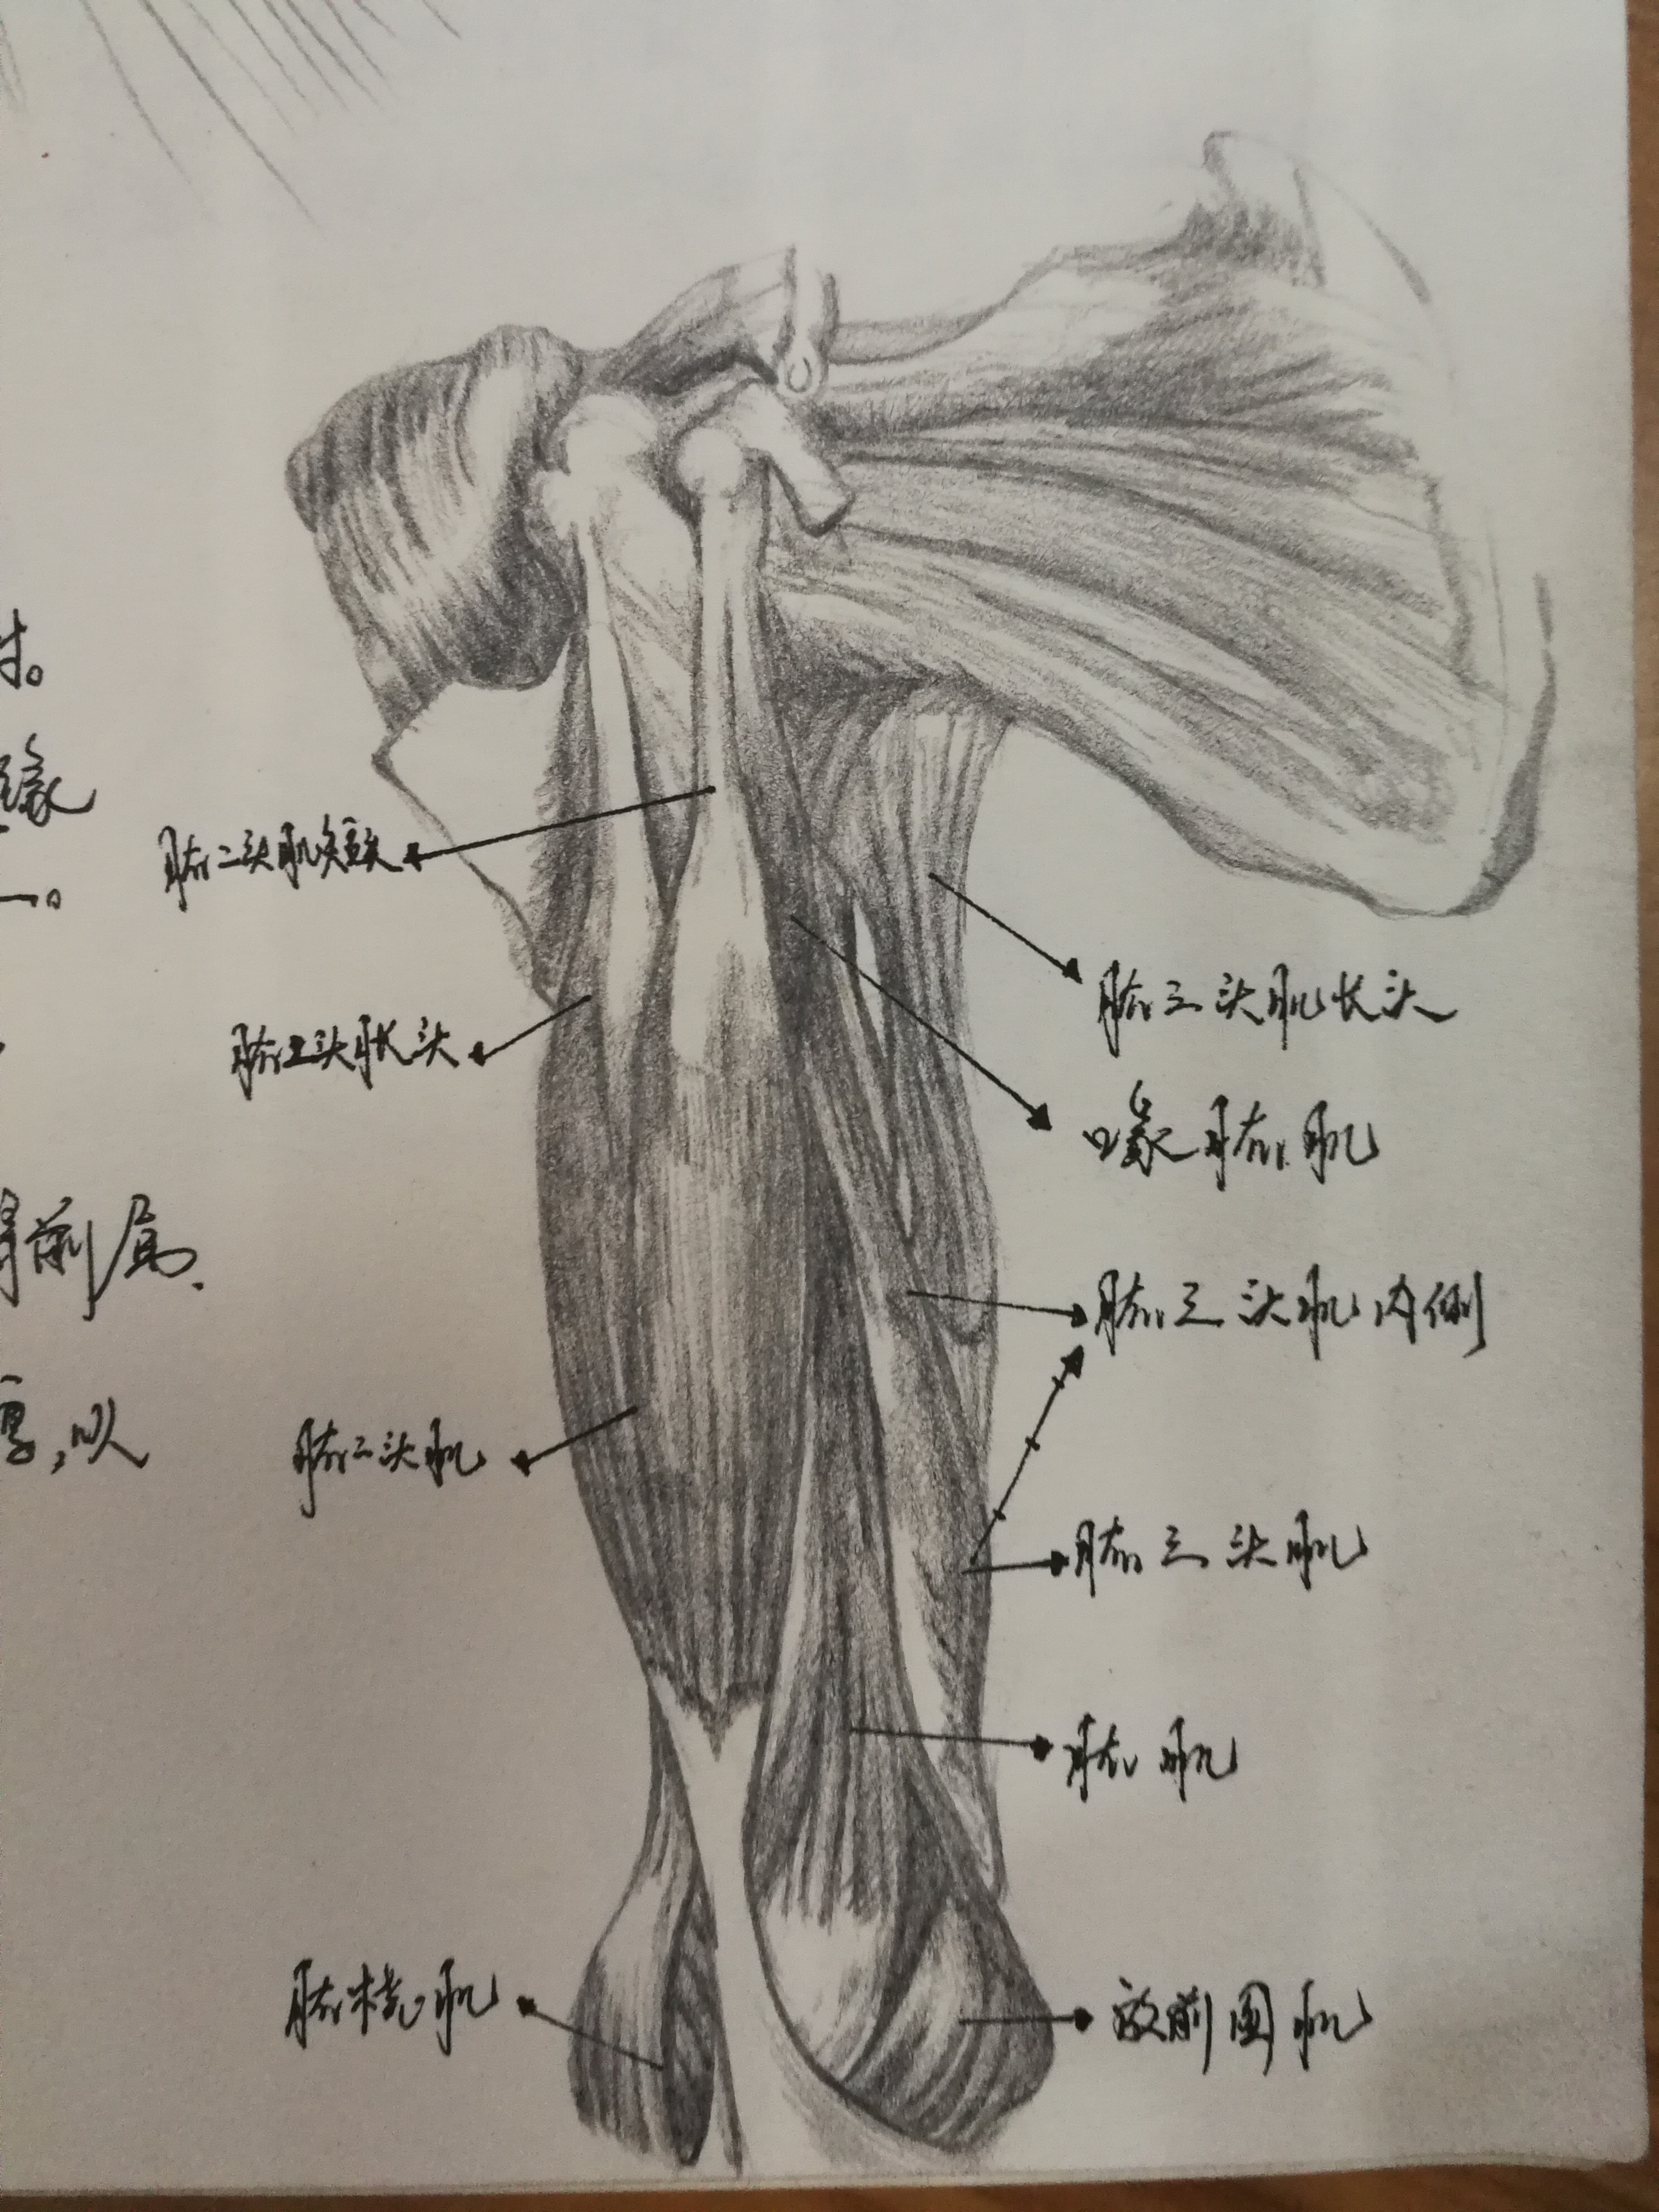 时。
缘
一。
前肩.
厚,以
肱二头肌短头
肱二头肌长头
肱二头肌
肱桡肌
肱三头肌长头
喙肱肌
肱三头肌内侧
肱三头肌
肱肌
旋前圆肌